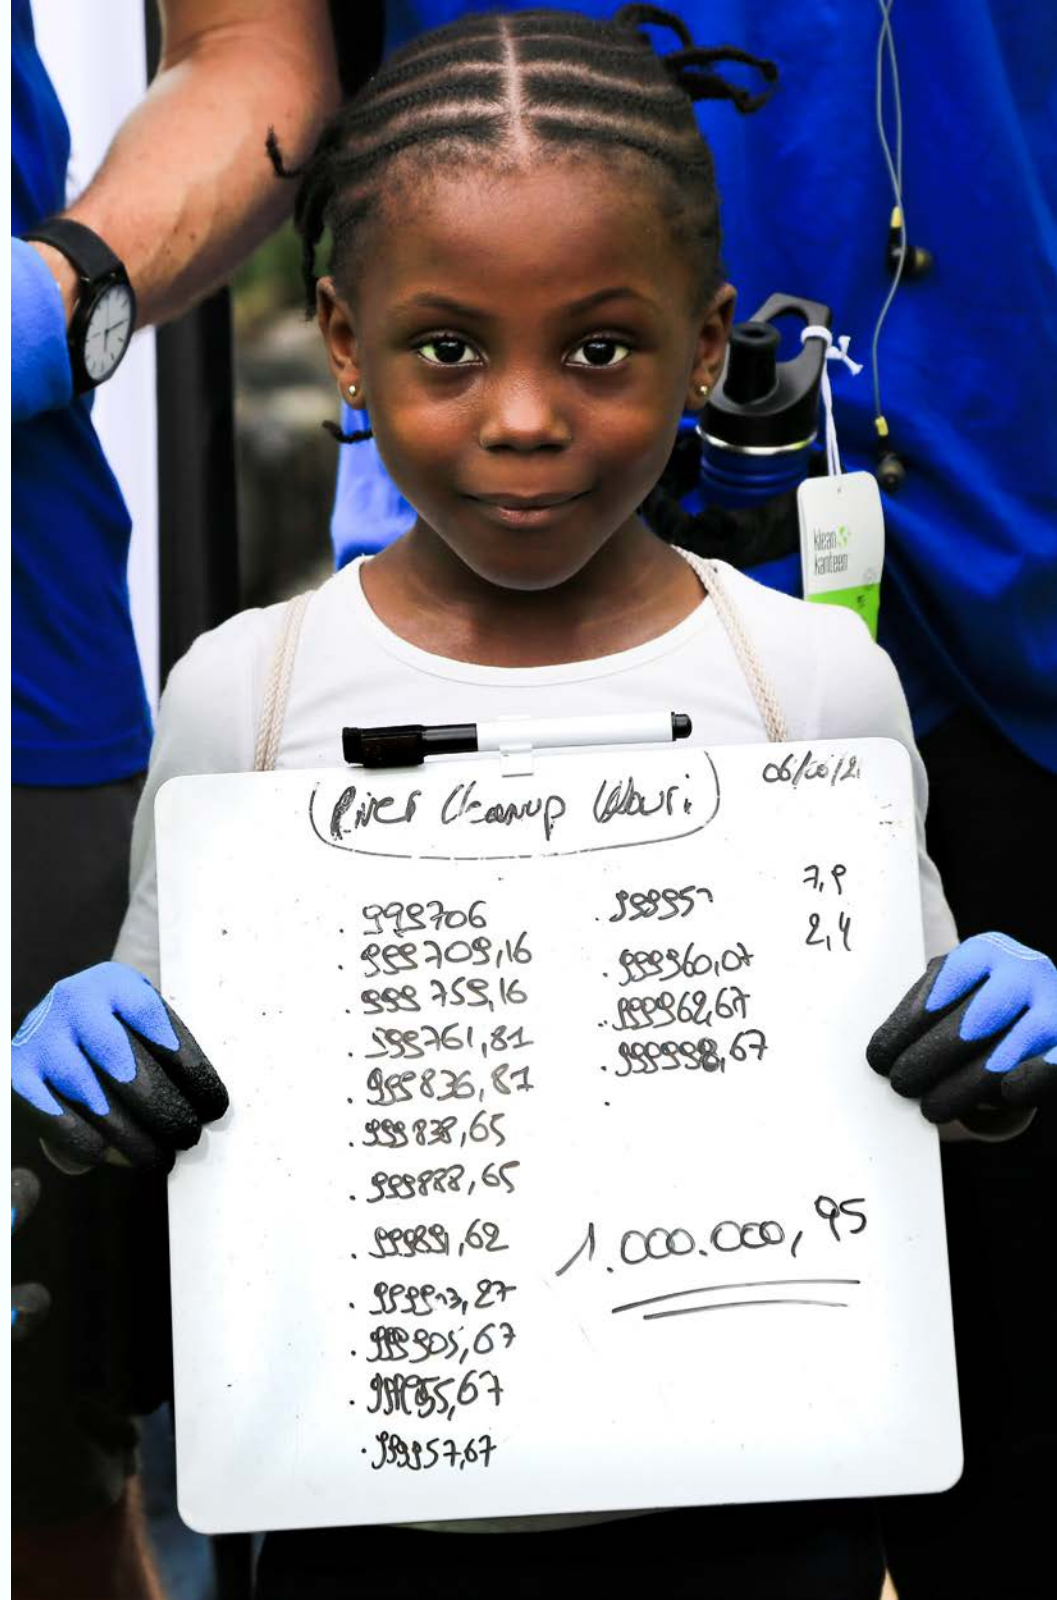 klean
kanteen
River Cleanup Wouri
06/06/21
999706
999709,16
999759,16
999761,81
999836,81
999838,65
999888,65
999891,62
999905,67
999955,67
999957,67
999957
999960,07
999962,67
999998,67
7,9
2,4
1.000.000,95